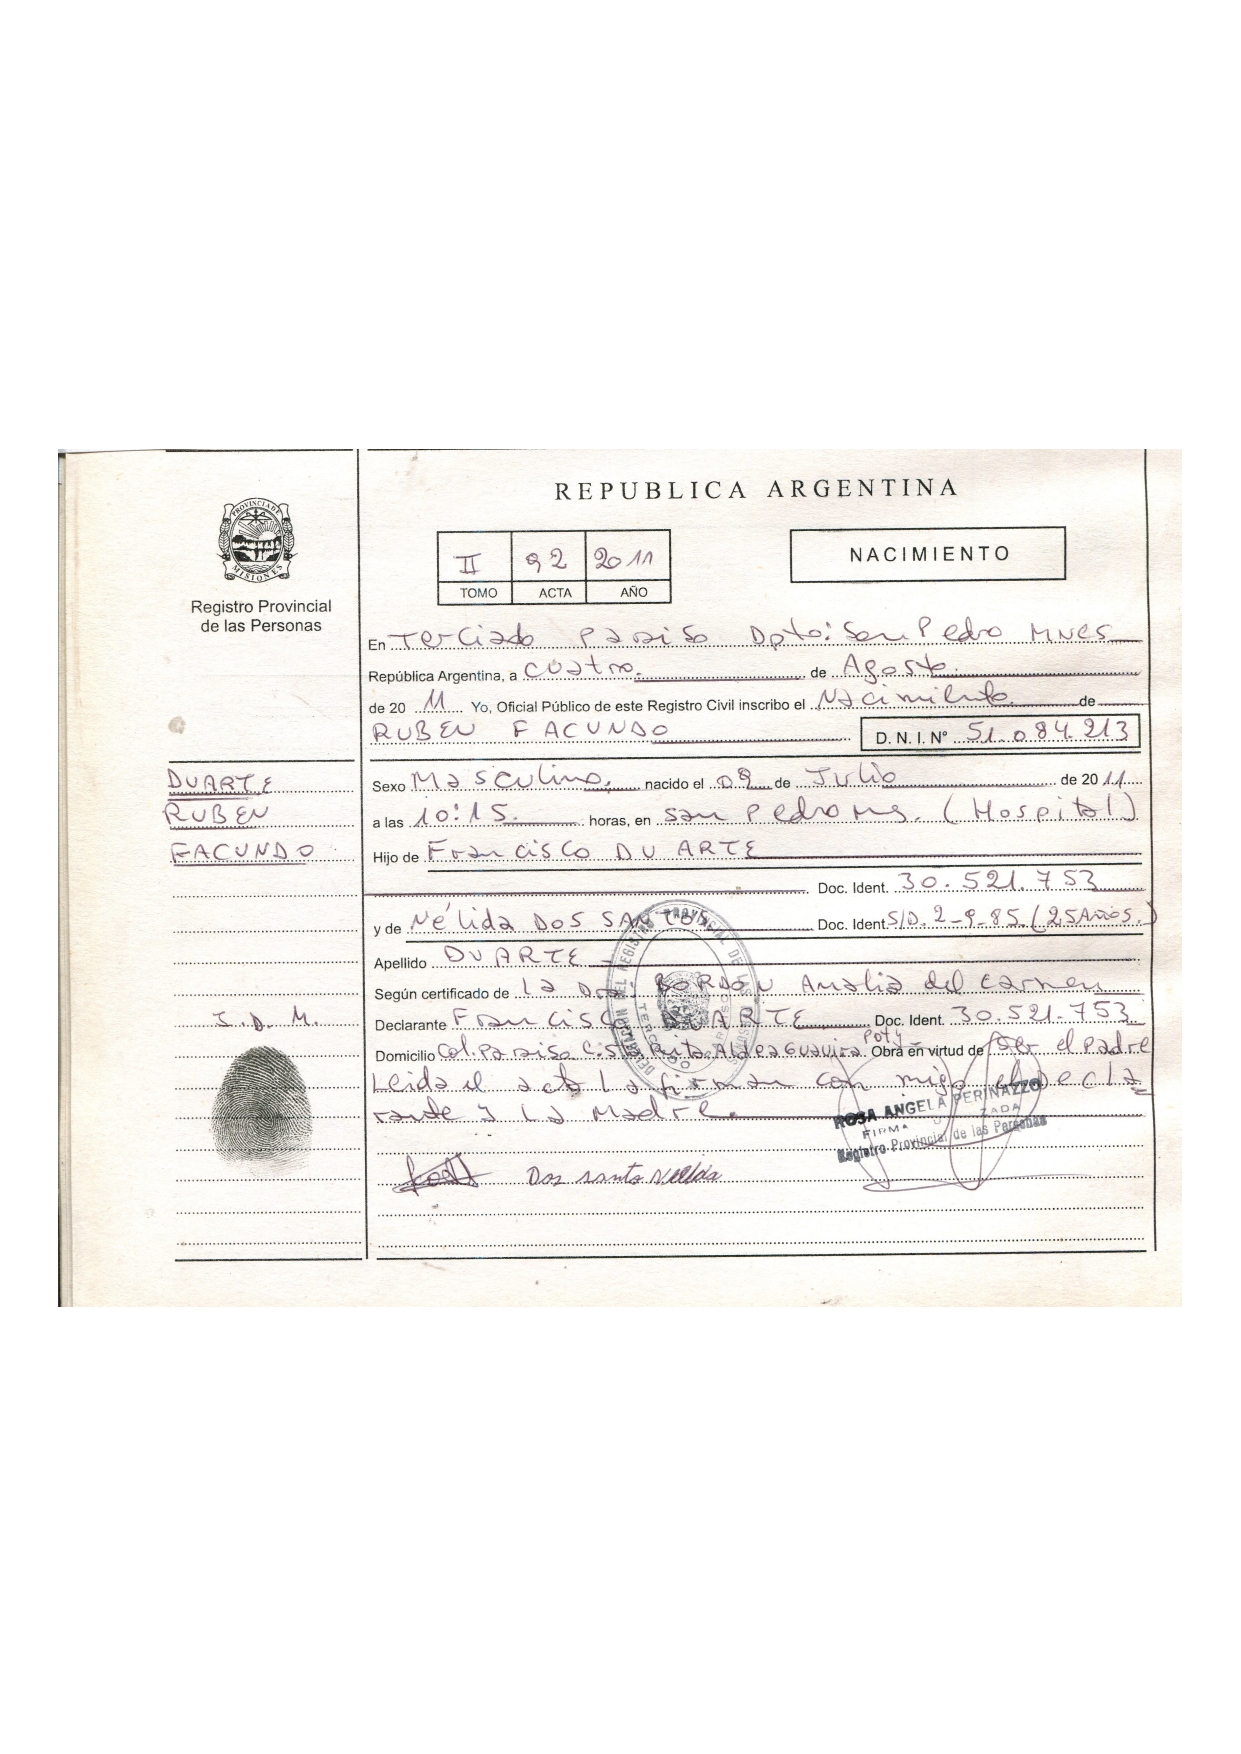 REPUBLICA ARGENTINA
PROVINCIA DE
MISIONES
Registro Provincial
de las Personas
II 92 2011
TOMO ACTA AÑO
NACIMIENTO
En Terciado Paraiso Dpto: San Pedro Mnes
República Argentina, a cuatro. de Agosto.
de 20 11 Yo, Oficial Público de este Registro Civil inscribo el Nacimiento de
RUBEN FACUNDO D. N. I. Nº 51.084.213
DUARTE
RUBEN
FACUNDO
Sexo Masculino. nacido el 09 de Julio de 2011
a las 10:15. horas, en San Pedro Ms. (Hospital)
Hijo de Francisco DUARTE
Doc. Ident. 30.521.753
y de Nélida DOS SANTOS Doc. Ident. S/D. 2-9-85 (25 Años.)
Apellido DUARTE
Según certificado de La Dra: BORDÓN Amalia del Carmen
I.D.M.
Declarante Francisco DUARTE Doc. Ident. 30.521.753
Domicilio Col. Paraiso C. Rita. Aldea Guavira Poty Obra en virtud de Ser el Padre
Leida el acta La firman con migo el Decla
rante y La Madre.
ROSA ANGELA PERINAZZO
FIRMA
Registro Provincial de las Personas
Dos santo Nelida